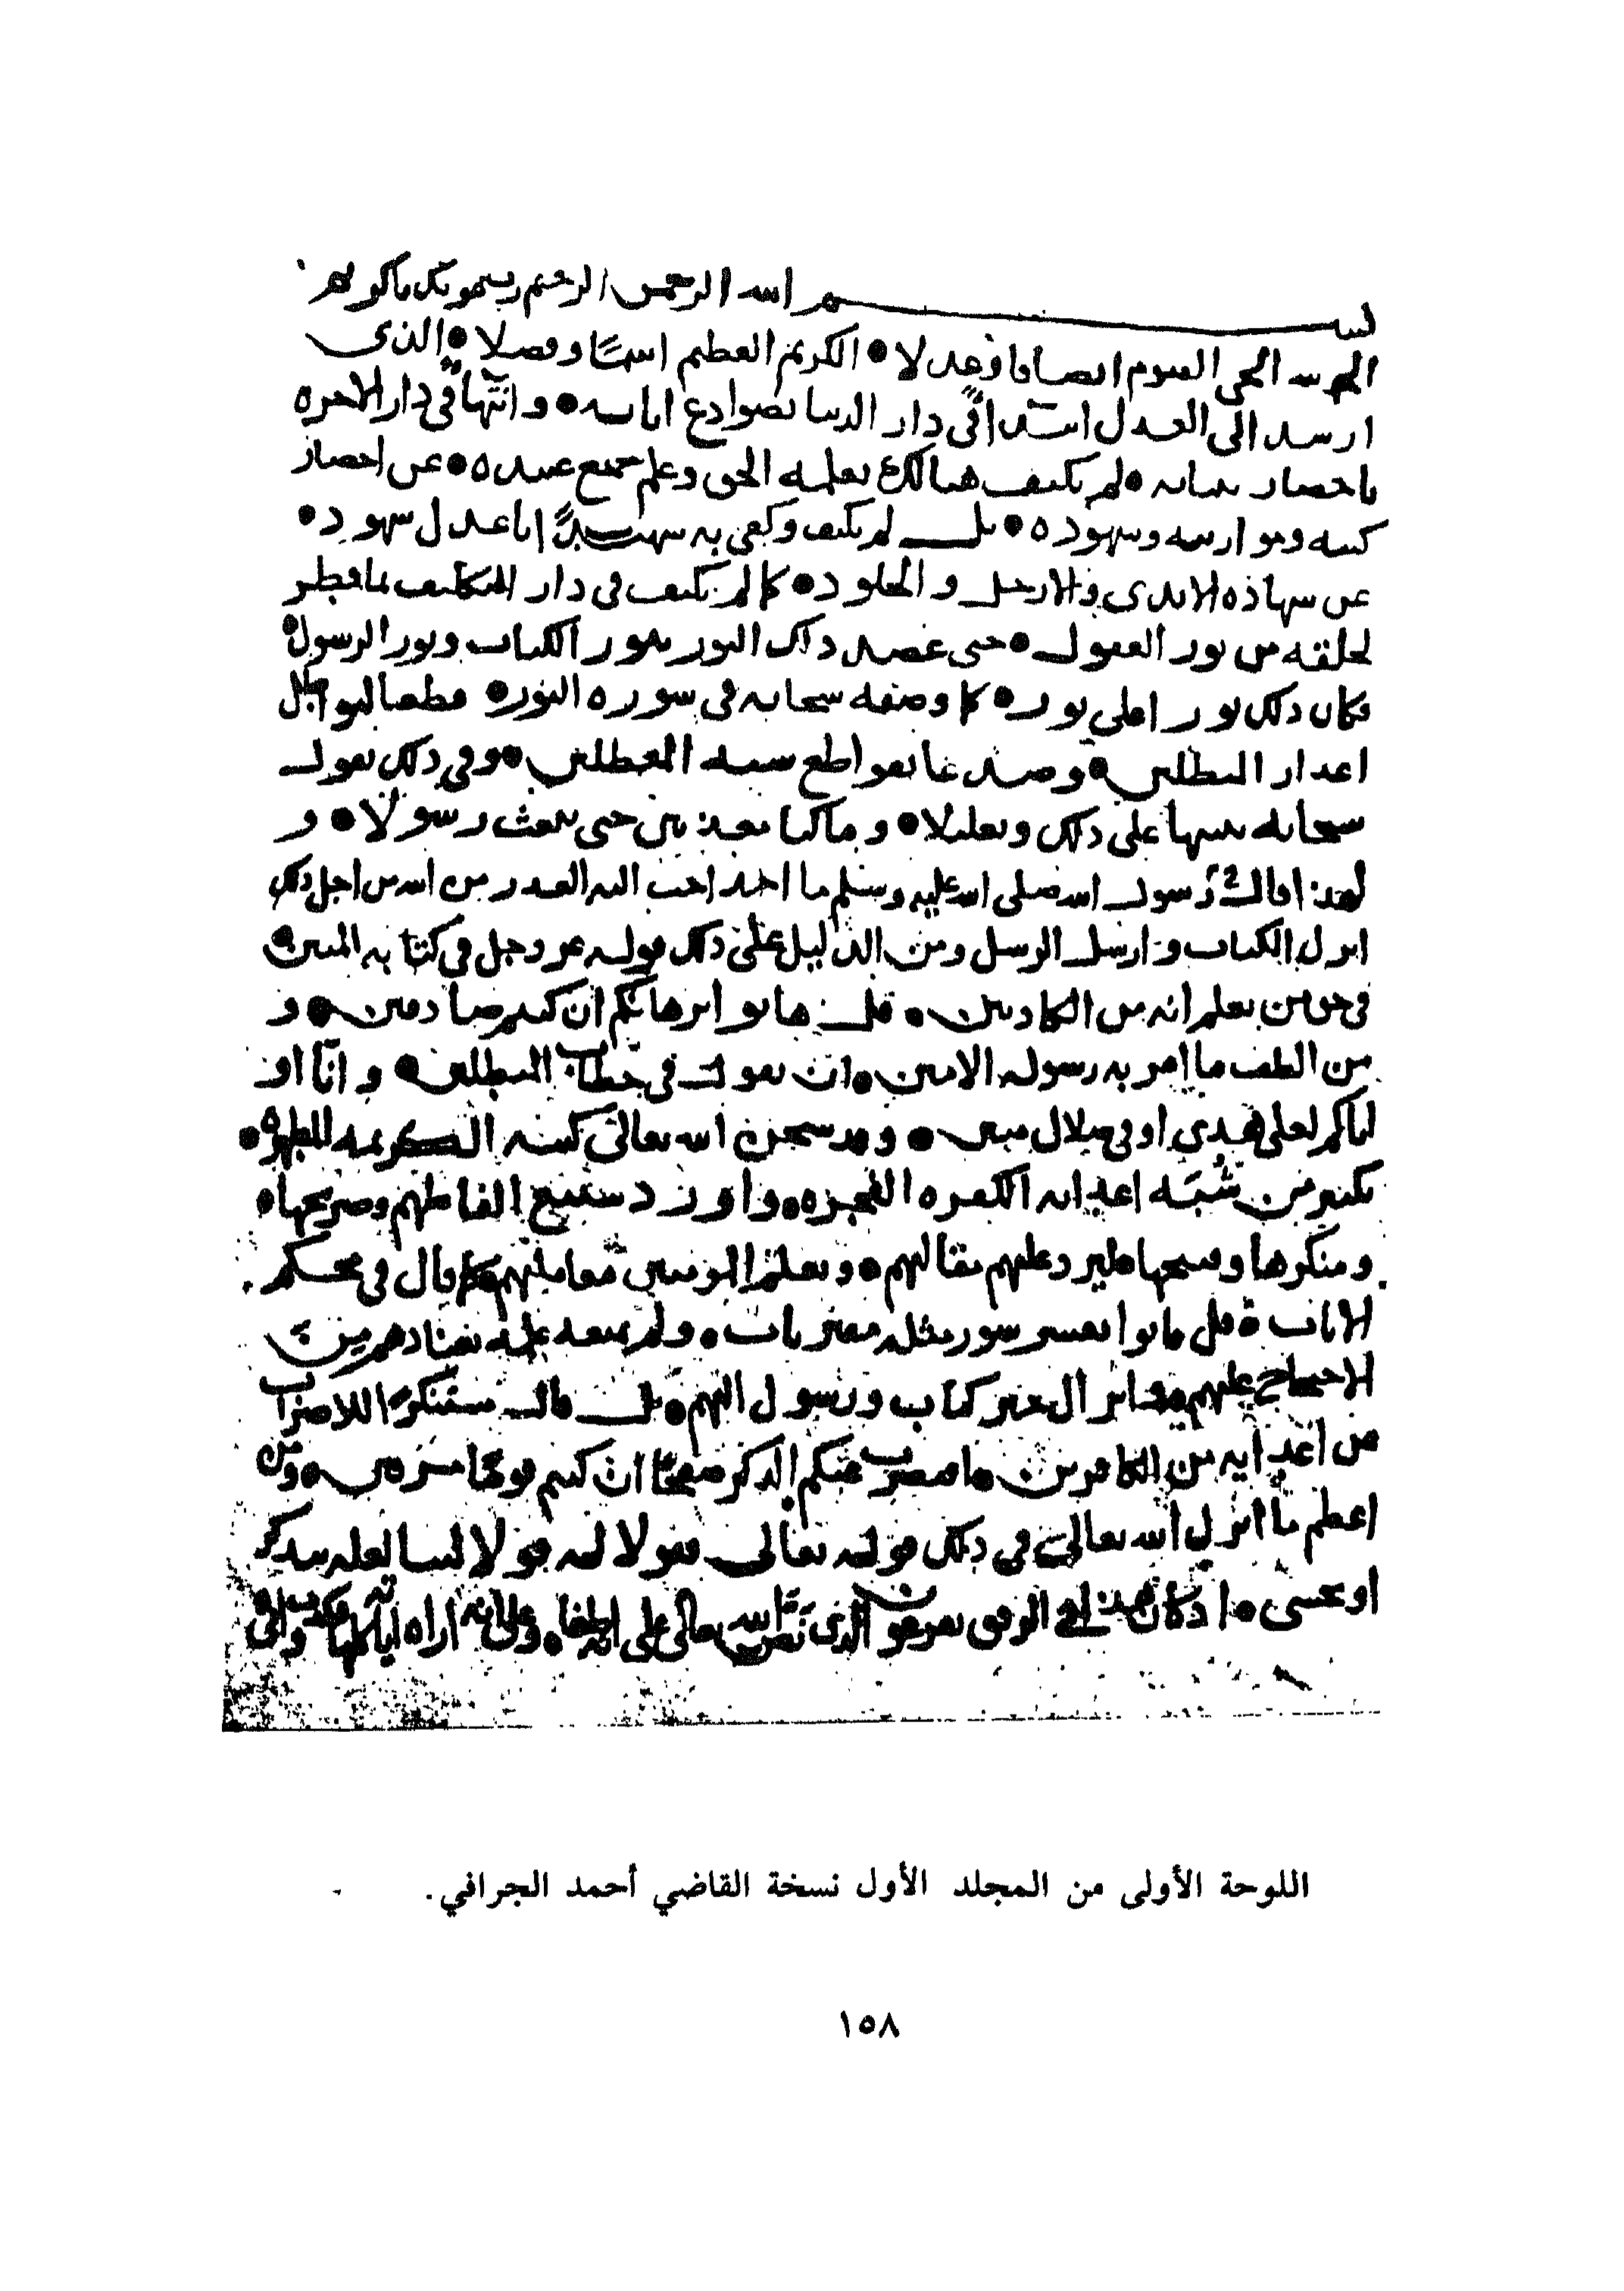 بسم الله الرحمن الرحيم وبه نستعين يا كريم
الحمد لله الحي القيوم إنصافا وعدلا • الكريم العظيم أسماً وفضلا • الذي
أرشد إلى العدل ابتداءً في دار الدنيا بصوادع آياته • وانتهاءً في دار الآخرة
بإحضار بيناته • لم يكتف هنالك بعلمه الحق وعلم جميع عبيده • عن إحضار
كتبه وموازينه وشهوده • بل لم يكتف وكفى به شهيداً بأعدل شهود •
عن شهادة الأيدي والأرجل والجلود • كما لم يكتف في دار التكليف بما فطر
لخلقه من نور العقول • حتى عضد ذلك النور بنور الكتاب ونور الرسول •
فكان ذلك نورا على نور • كما وصفه سبحانه في سورة النور • قطعا لبواطل
أعذار المبطلين • وصدعا بقواطع شبه المعطلين • وفي ذلك يقول
سبحانه تنبيها على ذلك وتعليلا • وما كنا معذبين حتى نبعث رسولا • و
لهذا قال رسول الله صلى الله عليه وسلم ما أحد أحب إليه العذر من الله من أجل ذلك
أنزل الكتاب وأرسل الرسل ومن الدليل على ذلك قوله عز وجل في كتابه المبين •
في حق من يعلم أنه من الكاذبين • قل هاتوا برهانكم إن كنتم صادقين • و
من ألطف ما أمر به رسوله الأمين • أن يقول في خطاب المبطلين • وإنا أو
إياكم لعلى هدى أو في ضلال مبين • وقد شحن الله تعالى كتبه الكريمة المطهرة •
بكثير من شبه أعدائه الكفرة الفجرة • وأورد شنيع ألفاظهم وصريحها •
ومنكرها وقبيحها ليرد عليهم مقالهم • ويعلم المؤمنين معاملتهم كما قال في محكم
الآيات • قل فأتوا بعشر سور مثله مفتريات • ولم يمنعه علمه بعنادهم من
الاحتجاج عليهم وإنزال خير كتاب ورسول إليهم • بل قال مستنكرا للإضراب
من أعدائه من الكافرين • أفنضرب عنكم الذكر صفحا أن كنتم قوما مسرفين • ومن
أعظم ما أنزل الله تعالى في ذلك قوله تعالى فقولا له قولا لينا لعله يتذكر
أو يخشى • الرفق بفرعون الذي نص الله تعالى على أنه أراه آياته كلها فكذب وأبى
اللوحة الأولى من المجلد الأول نسخة القاضي أحمد الجرافي.
١٥٨